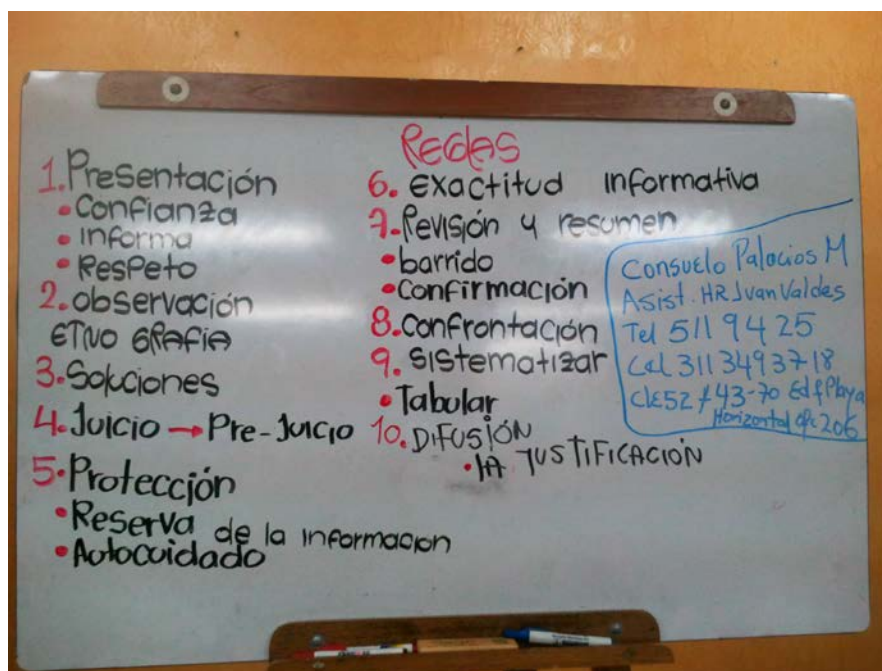 Reglas
1. Presentación
• Confianza
• informa
• Respeto
2. observación
ETNO GRAFIA
3. Soluciones
4. Juicio → Pre-Juicio
5. Protección
• Reserva de la informacion
• Autocuidado
6. Exactitud informativa
7. Revisión y resumen
• barrido
• Confirmación
8. Confrontación
9. Sistematizar
• Tabular
10. DIFUSIÓN
• lA JUSTIFICACIÓN
Consuelo Palacios M
Asist. HR Juan Valdes
Tel 511 94 25
Cel 311 349 37 18
Cle 52 # 43-70 Edf Playa
Horizontal ofc 206